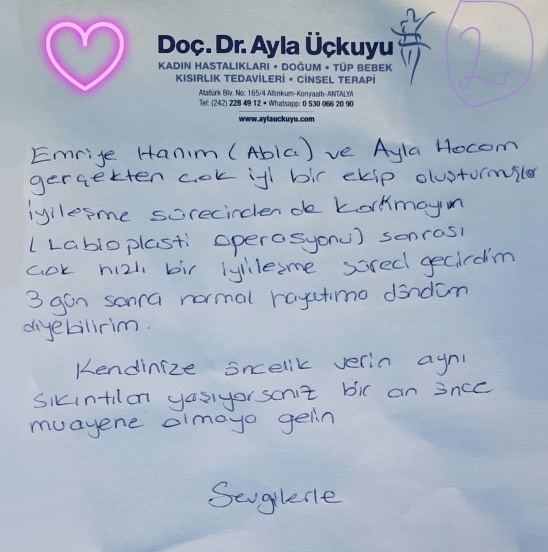 Doç. Dr. Ayla Üçkuyu
KADIN HASTALIKLARI • DOĞUM • TÜP BEBEK
KISIRLIK TEDAVİLERİ • CİNSEL TERAPİ
Atatürk Blv. No: 165/4 Altınkum-Konyaaltı-ANTALYA
Tel: (242) 228 49 12 • Whatsapp: 0 530 066 20 90
www.aylauckuyu.com
2
Emriye Hanım (Abla) ve Ayla Hocam
gerçekten çok iyi bir ekip oluşturmuşlar
İyileşme sürecinden de korkmayın
(Labioplasti operasyonu) sonrası
çok hızlı bir iyileşme süreci geçirdim
3 gün sonra normal hayatıma döndüm
diyebilirim.
Kendinize öncelik verin aynı
sıkıntıları yaşıyorsanız bir an önce
muayene olmaya gelin
Sevgilerle